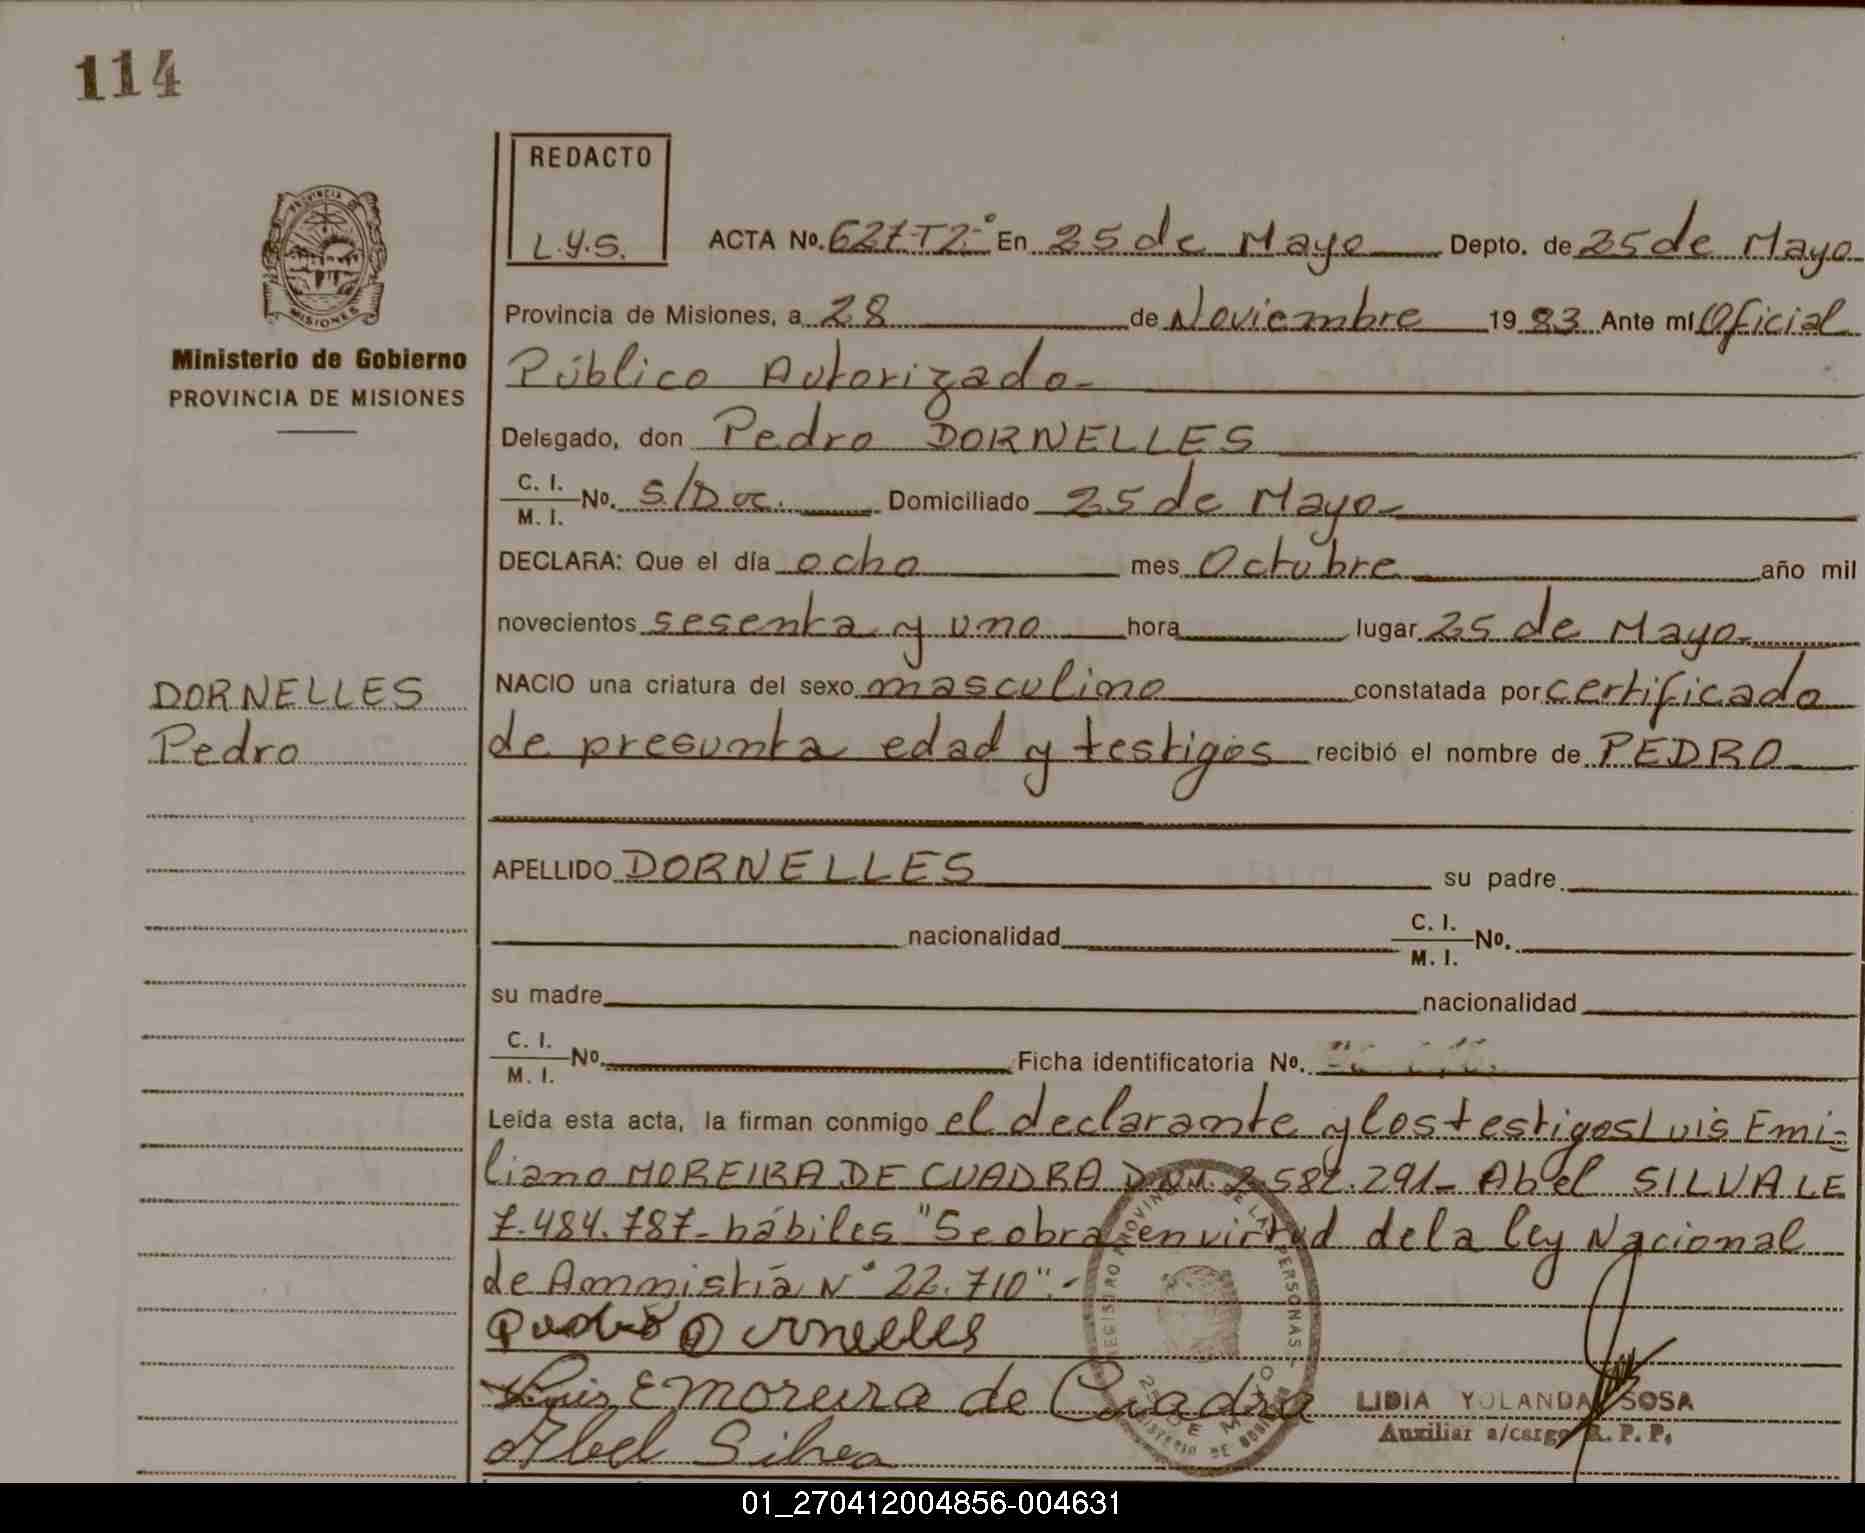 114
REDACTO
L.Y.S.
PROVINCIA DE
MISIONES
Ministerio de Gobierno
PROVINCIA DE MISIONES
ACTA No. 627-T2-° En 25 de Mayo Depto. de 25 de Mayo
Provincia de Misiones, a 28 de Noviembre 19 83 Ante mi Oficial
Público Autorizado-
Delegado, don Pedro DORNELLES
C. I. / M. I. No. S/Doc. Domiciliado 25 de Mayo-
DECLARA: Que el día ocho mes Octubre año mil
novecientos sesenta y uno hora lugar 25 de Mayo-
NACIO una criatura del sexo masculino constatada por certificado
de presunta edad y testigos recibió el nombre de PEDRO
DORNELLES
Pedro
APELLIDO DORNELLES su padre
nacionalidad C. I. / M. I. No.
su madre nacionalidad
C. I. / M. I. No. Ficha identificatoria No.
Leída esta acta, la firman conmigo el declarante y los testigos Luis Emi-
liano MOREIRA DE CUADRA DNM. 2.582.291- Abel SILVA LE
7.484.787- hábiles "Se obra en virtud de la ley Nacional
de Amnistía N° 22.710".-
Pedro Dornelles
Luis E Moreira de Cuadra
Abel Silva
REGISTRO PROVINCIAL DE LAS PERSONAS
25 DE MAYO
MINISTERIO DE GOBIERNO
LIDIA YOLANDA SOSA
Auxiliar a/cargo R. P. P.
01_270412004856-004631